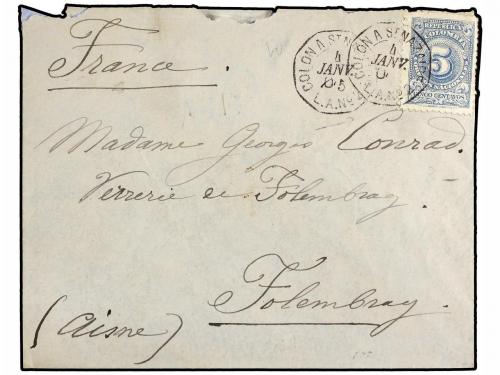 France.
COLON A ST NAZAIRE
4
JANV
05
L.A. No
COLON A ST NAZAIRE
4
JANV
L.A. No
REPUBLICA
COLOMBIA
5
CINCO CENTAVOS
Madame Georges Conrad.
Verrerie de Folembray.
Folembray.
(Aisne)